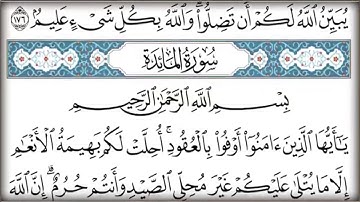 يُبَيِّنُ ٱللَّهُ لَكُمْ أَن تَضِلُّوا۟ ۗ وَٱللَّهُ بِكُلِّ شَىْءٍ عَلِيمٌۢ ١٧٦
سُورَةُ المَائِدَةِ
بِسْمِ ٱللَّهِ ٱلرَّحْمَـٰنِ ٱلرَّحِيمِ
يَـٰٓأَيُّهَا ٱلَّذِينَ ءَامَنُوٓا۟ أَوْفُوا۟ بِٱلْعُقُودِ ۚ أُحِلَّتْ لَكُم بَهِيمَةُ ٱلْأَنْعَـٰمِ
إِلَّا مَا يُتْلَىٰ عَلَيْكُمْ غَيْرَ مُحِلِّى ٱلصَّيْدِ وَأَنتُمْ حُرُمٌ ۗ إِنَّ ٱللَّهَ